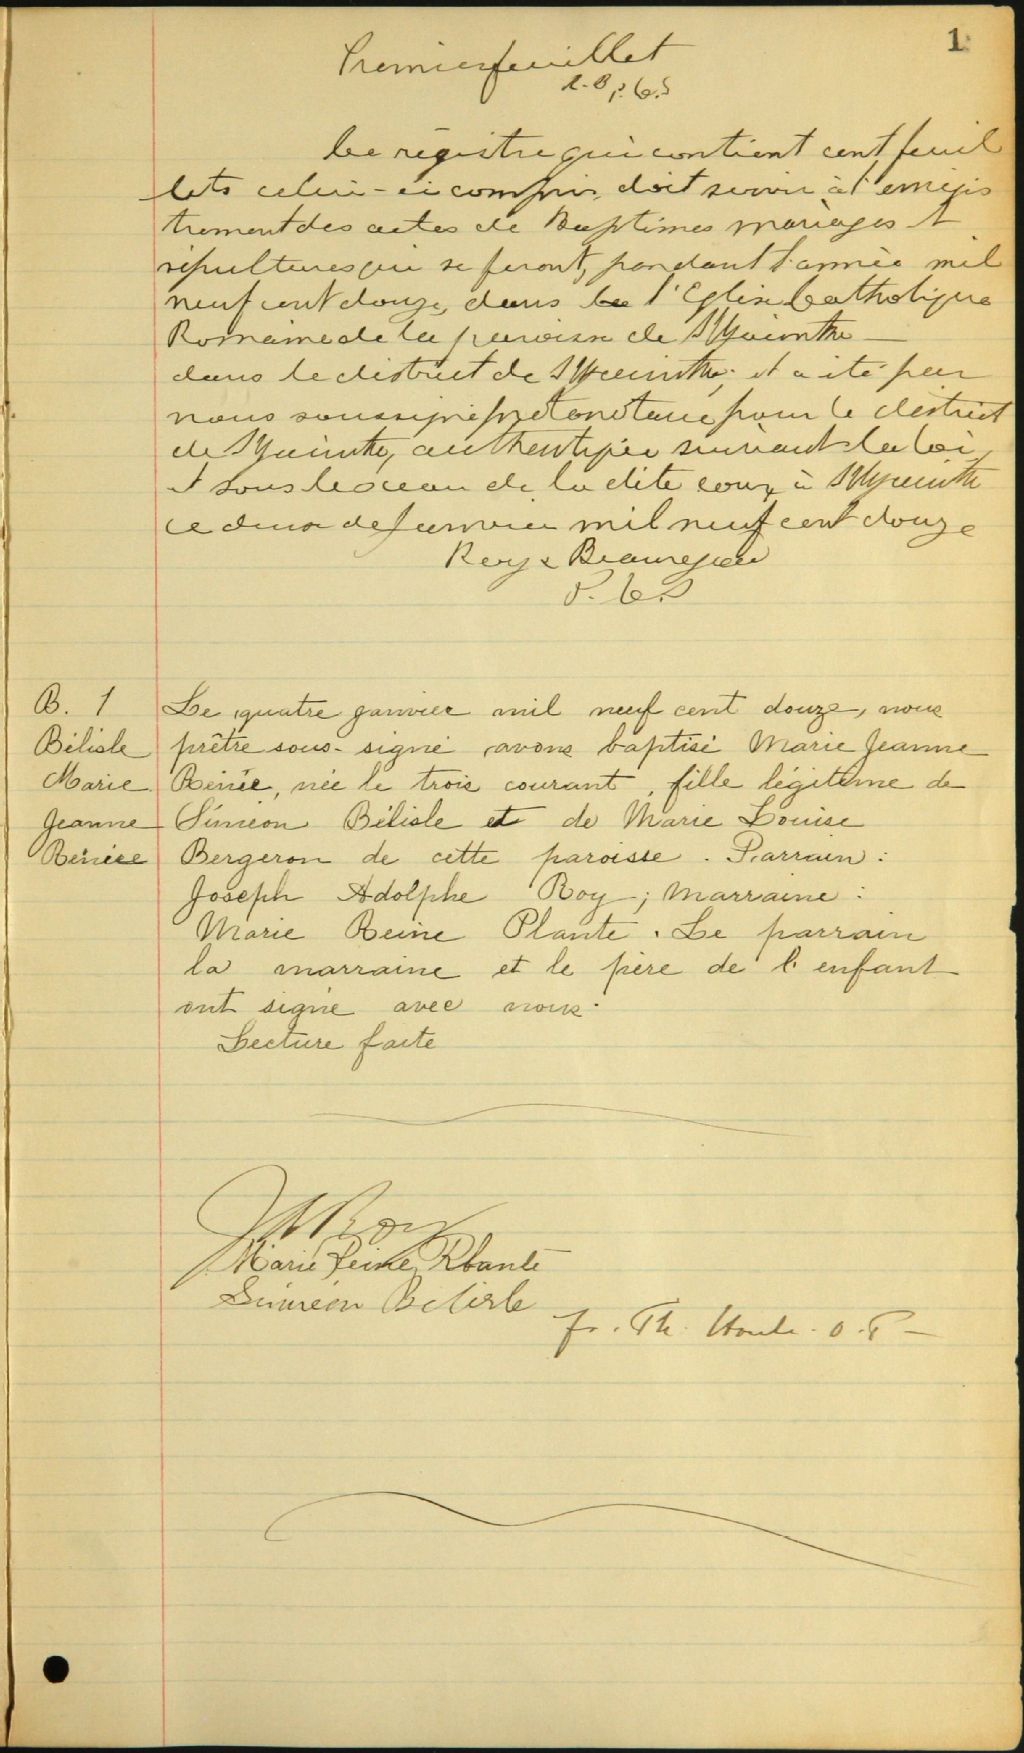 1
Premier feuillet
R. B p. C. S
Ce régistre qui contient cent feuil
lets celui-ci compris doit servir à l'enregis
trement des actes de Baptêmes mariages et
sépultures qui se feront, pendant l'année mil
neuf cent douze, dans l'Eglise Catholique
Romaine de la paroisse de St Hyacinthe
dans le district de St Hyacinthe; et a été par
nous soussigné protonotaire pour le district
de St Hyacinthe, authentiqué suivant la loi,
et sous le sceau de la dite cour, à St Hyacinthe
ce deux de Janvier mil neuf cent douze
Roy & Beauregard
P. C. S
B. 1
Bélisle
Marie
Jeanne
Renée
Le quatre janvier mil neuf cent douze, nous
prêtre sous-signé avons baptisé Marie Jeanne
Renée, née le trois courant, fille légitime de
Siméon Bélisle et de Marie Louise
Bergeron de cette paroisse. Parrain:
Joseph Adolphe Roy; marraine:
Marie Reine Plante. Le parrain
la marraine et le père de l'enfant
ont signé avec nous.
Lecture faite
J A Roy
Marie Reine Plante
Siméon Bélisle
fr. Th. Houle. O. P